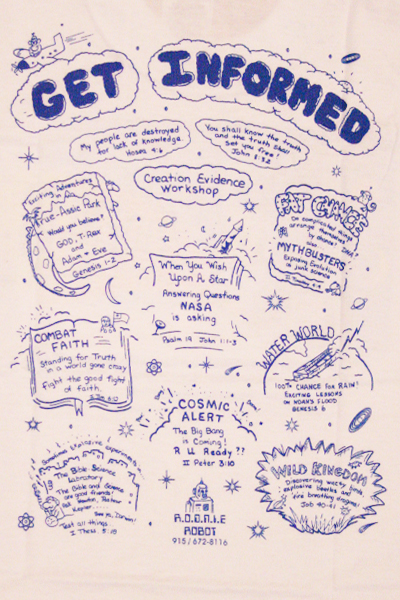 GET INFORMED
My people are destroyed
for lack of knowledge.
Hosea 4:6
You shall know the truth
and the truth shall
set you free!
John 8:32
Creation Evidence
Workshop
Exciting Adventures
in Da
True-Assic Park
Would you believe?
GOD, T-Rex
and
Adam & Eve
Genesis 1-2
When You Wish
Upon A Star
Answering Questions
NASA
is asking
Psalm 19 John 1:1-3
FAT CHANCE
Do complicated things
arrange themselves
by chance?
also
MYTHBUSTERS
Exposing Evolution
as junk science
COMBAT
FAITH
Standing for Truth
in a world gone crazy
Fight the good fight
of faith.
WATER WORLD
100% CHANCE FOR RAIN?
EXCITING LESSONS
IN NOAH'S FLOOD
GENESIS 6
COSMIC
ALERT
The Big Bang
is Coming!
R U Ready??
II Peter 3:10
The Bible Science
Laboratory
The Bible and Science
are good friends!
Newton, Pasteur
Kepler
Test all things
I Thess. 5:18
WILD KINGDOM
Discovering wacky birds
explosive beetles and
fire breathing dragons!
Job 40-41
R.O.D.N.I.E
ROBOT
915/672-8116